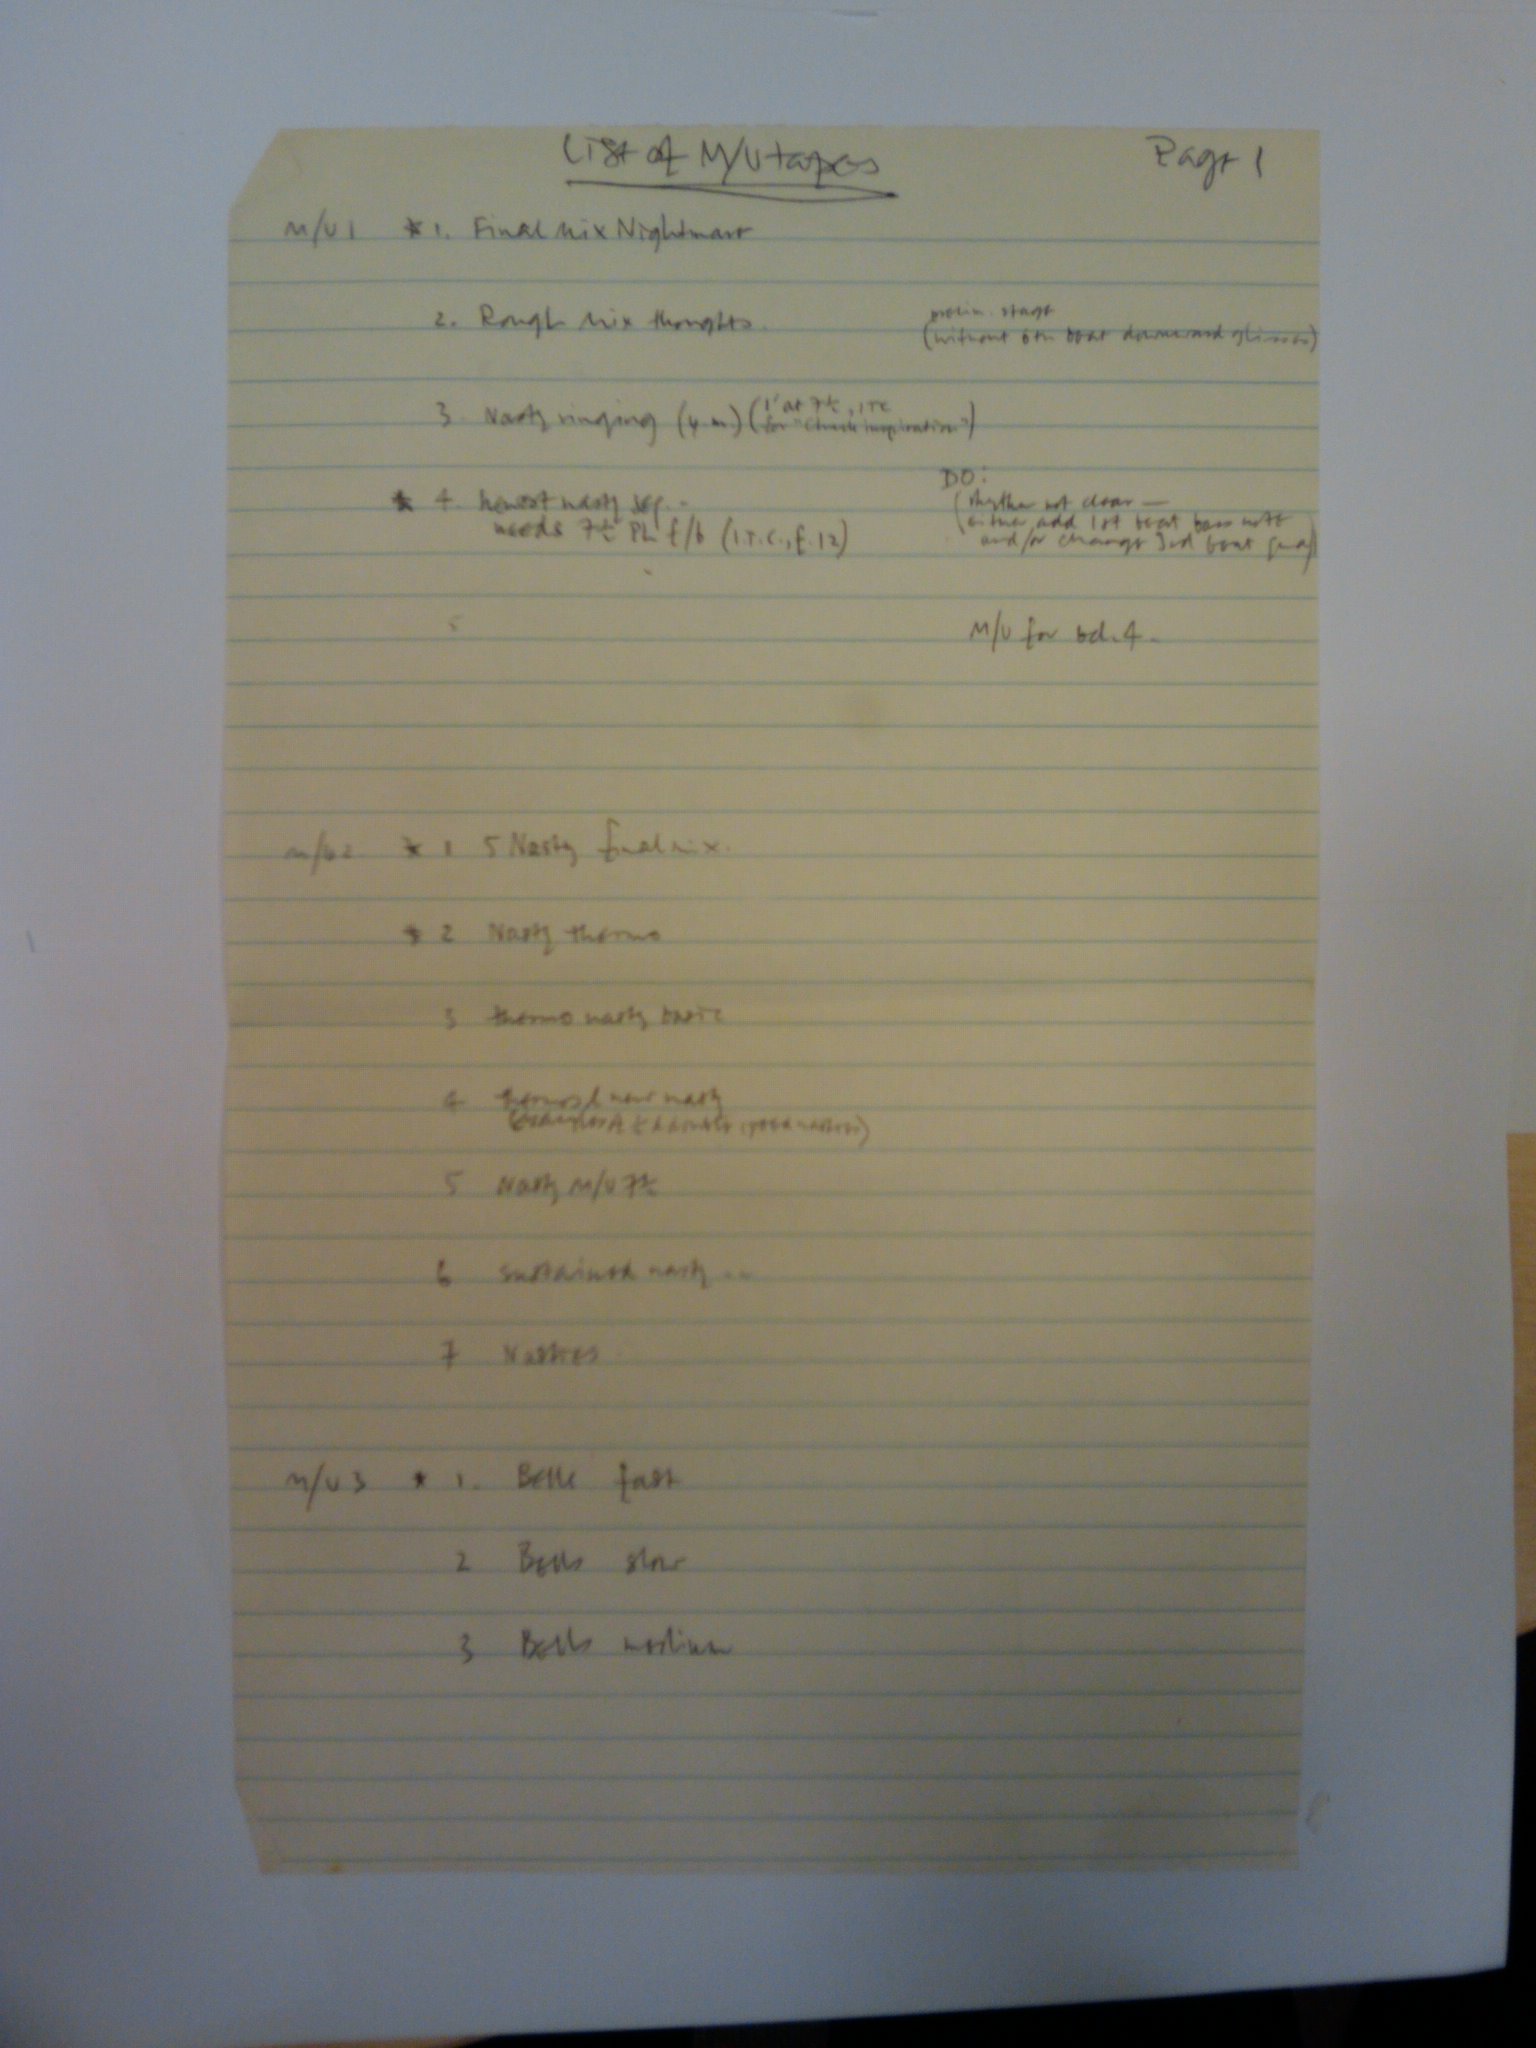 List of M/U tapes
Page 1
M/U 1 * 1. Final Mix Nightmare
2. Rough Mix thoughts.
prelim. stage
(without 6th beat downward glisses)
3 Nasty ringing (4 m) (1' at 7½, ITC
for "Check inspiration")
* 4. nasty
needs 7½ f/b (I.T.C., f. 12)
DO:
(rhythm not clear —
either add 1st beat bass note
and/or change 3rd beat
5
M/U for bd. 4.
M/U 2 * 1 5 Nasty final mix.
* 2 Nasty thermo
3 thermo nasty basic
4 new nasty
5 Nasty M/U 7½
6 sustained nasty ..
7 Nasties
M/U 3 * 1. Bells fast
2 Bells slow
3 Bells medium